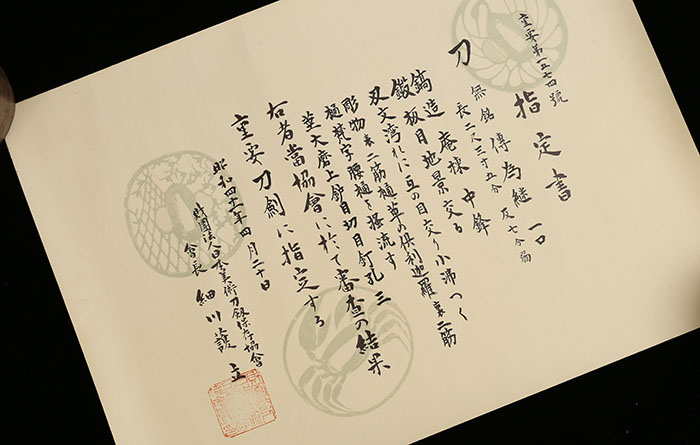 重要第一五七四號
指定書
刀 無銘 傳為継 一口
長二尺三寸五分 反七分
鎬造 庵棟 中鋒
鍛 板目地景交る
刃文 湾れに互の目交り小沸つく
彫物 表二筋樋草の倶利迦羅 裏二筋
樋梵字腰樋を掻流す
茎 大磨上 鑢目切 目釘孔三
右者當協會に於て審査の結果
重要刀剣に指定する
昭和四十二年四月二十日
財團法人日本美術刀剣保存協會
會長 細川護立